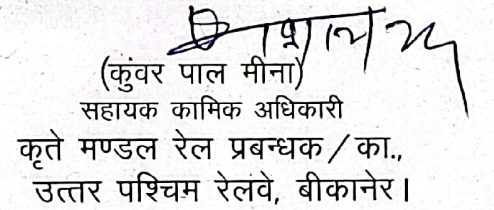 (कुंवर पाल मीना)
सहायक कार्मिक अधिकारी
कृते मण्डल रेल प्रबन्धक / का.,
उत्तर पश्चिम रेलवे, बीकानेर।